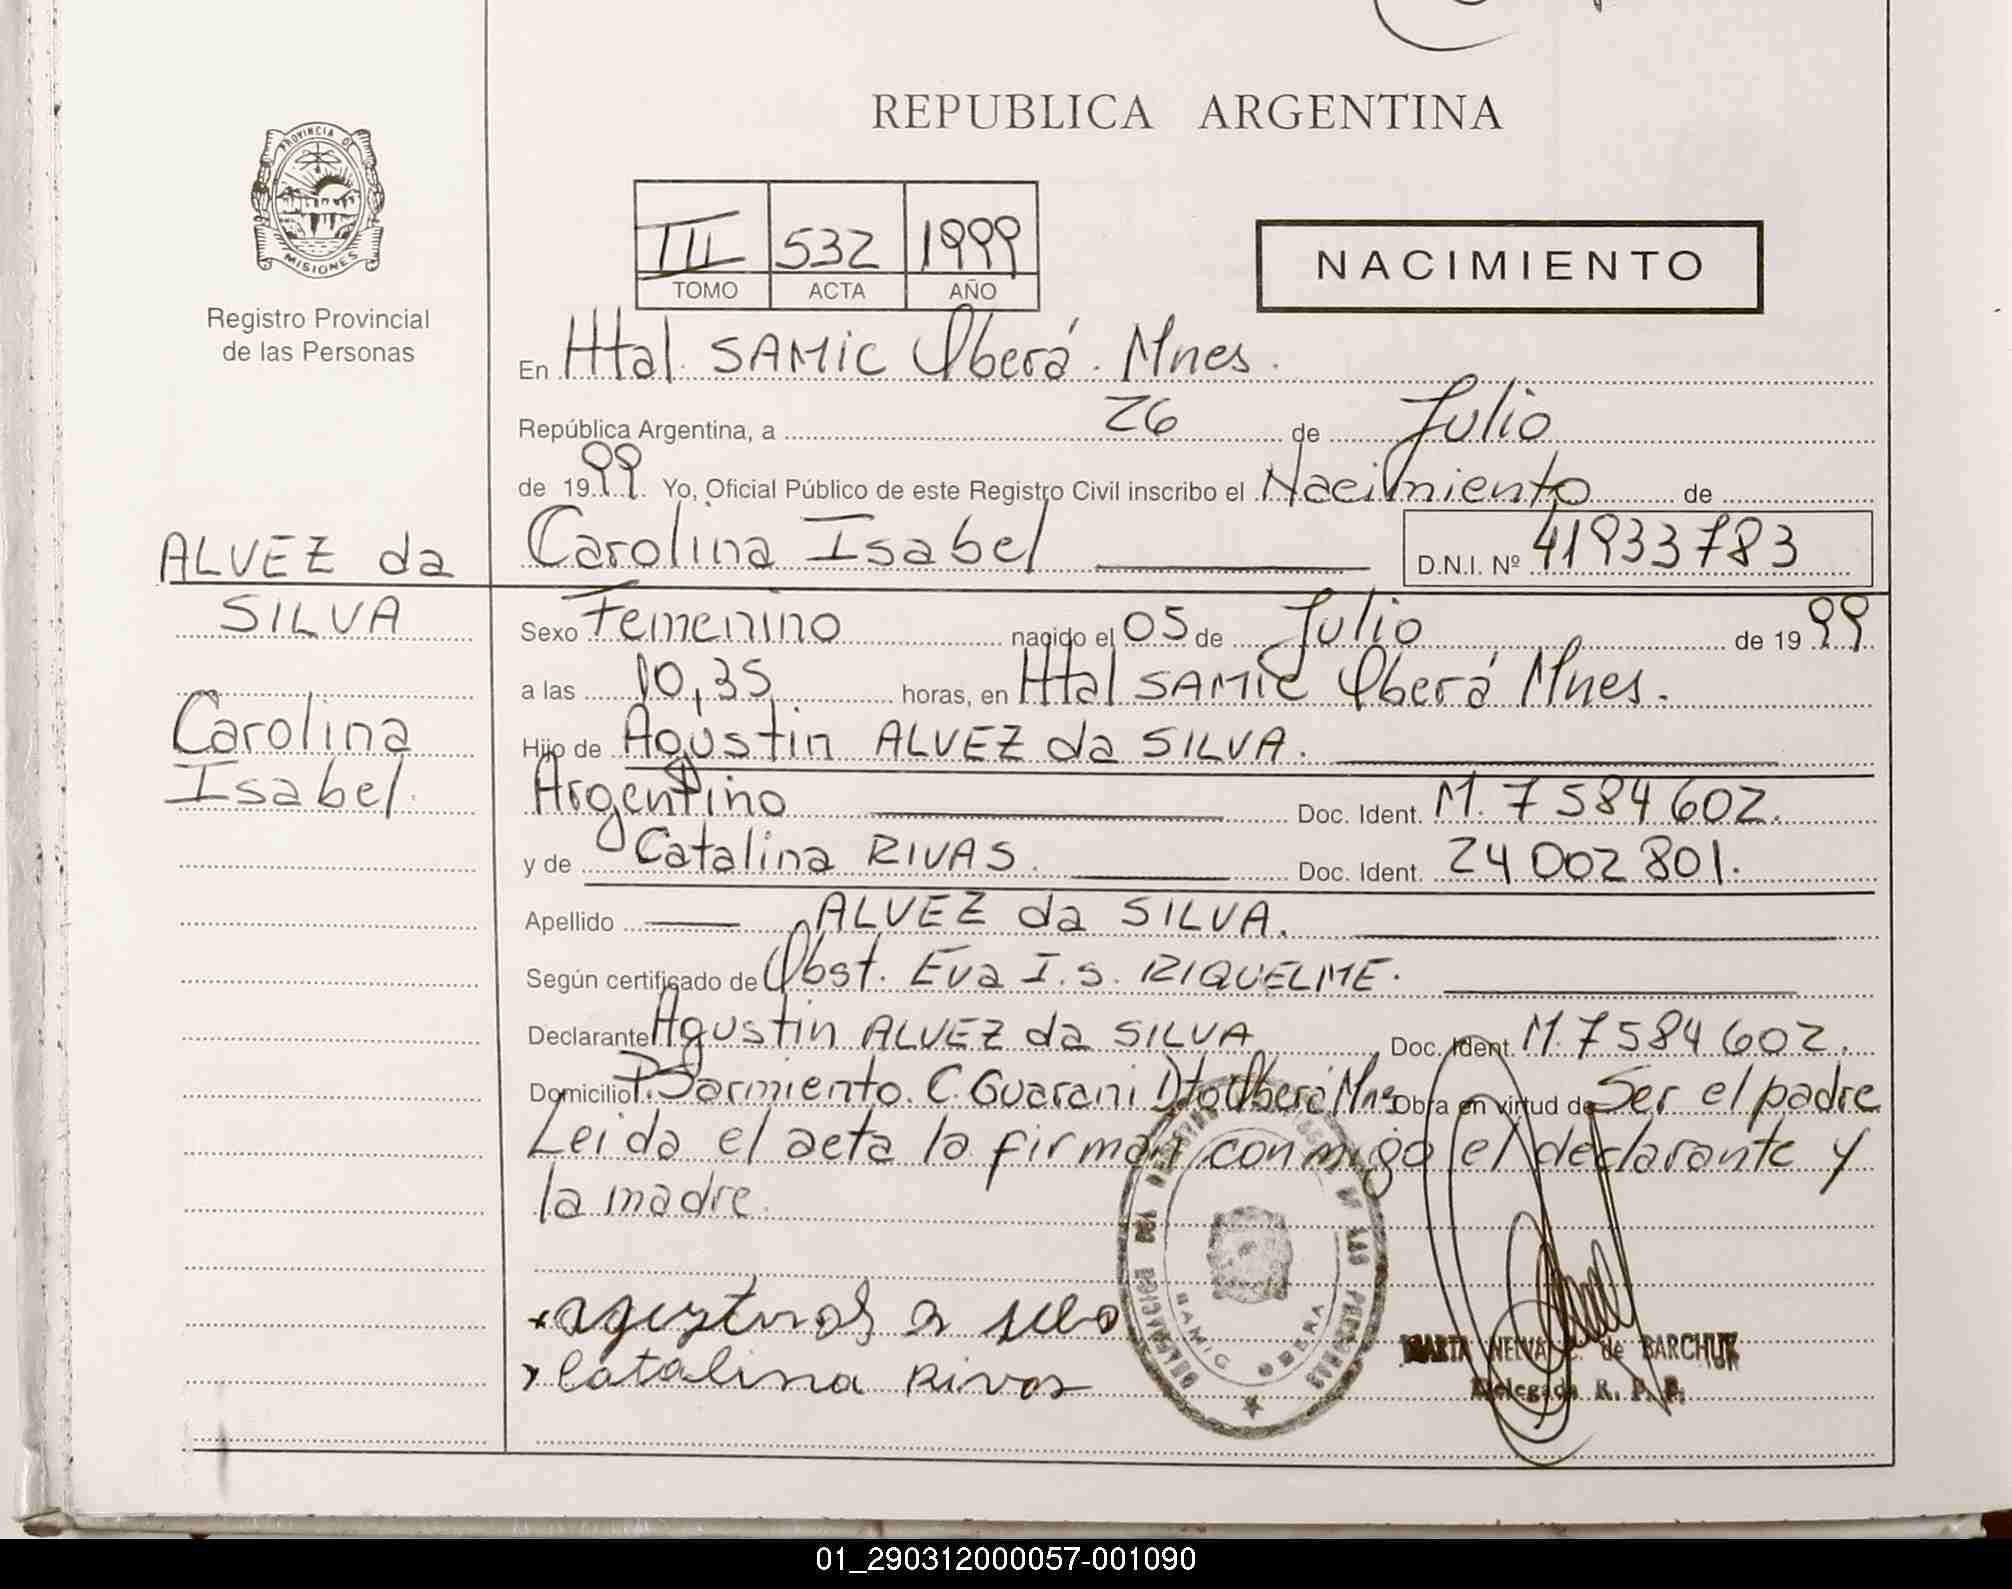 REPUBLICA ARGENTINA
PROVINCIA DE
MISIONES
Registro Provincial
de las Personas
III 532 1999
TOMO ACTA AÑO
NACIMIENTO
En Htal. SAMIC Oberá. Mnes.
República Argentina, a 26 de Julio
de 1999. Yo, Oficial Público de este Registro Civil inscribo el Nacimiento de
ALVEZ da
SILVA
Carolina
Isabel.
Carolina Isabel D.N.I. Nº 41933783
Sexo Femenino nacido el 05 de Julio de 1999
a las 10,35 horas, en Htal SAMIC Oberá Mnes.
Hijo de Agustin ALVEZ da SILVA.
Argentino Doc. Ident. M. 7584602.
y de Catalina RIVAS. Doc. Ident. 24002801.
Apellido ALVEZ da SILVA.
Según certificado de Obst. Eva I.S. RIQUELME.
Declarante Agustin ALVEZ da SILVA Doc. Ident. M. 7584602.
Domicilio P. Sarmiento. C. Guarani Dto Oberá Mnes Obra en virtud de Ser el padre
Leida el acta la firman conmigo el declarante y
la madre.
Catalina Rivas
SAMIC OBERA
DE LAS PERSONAS
MARTA NELVA C. de BARCHUK
Delegada R. P. P.
01_290312000057-001090